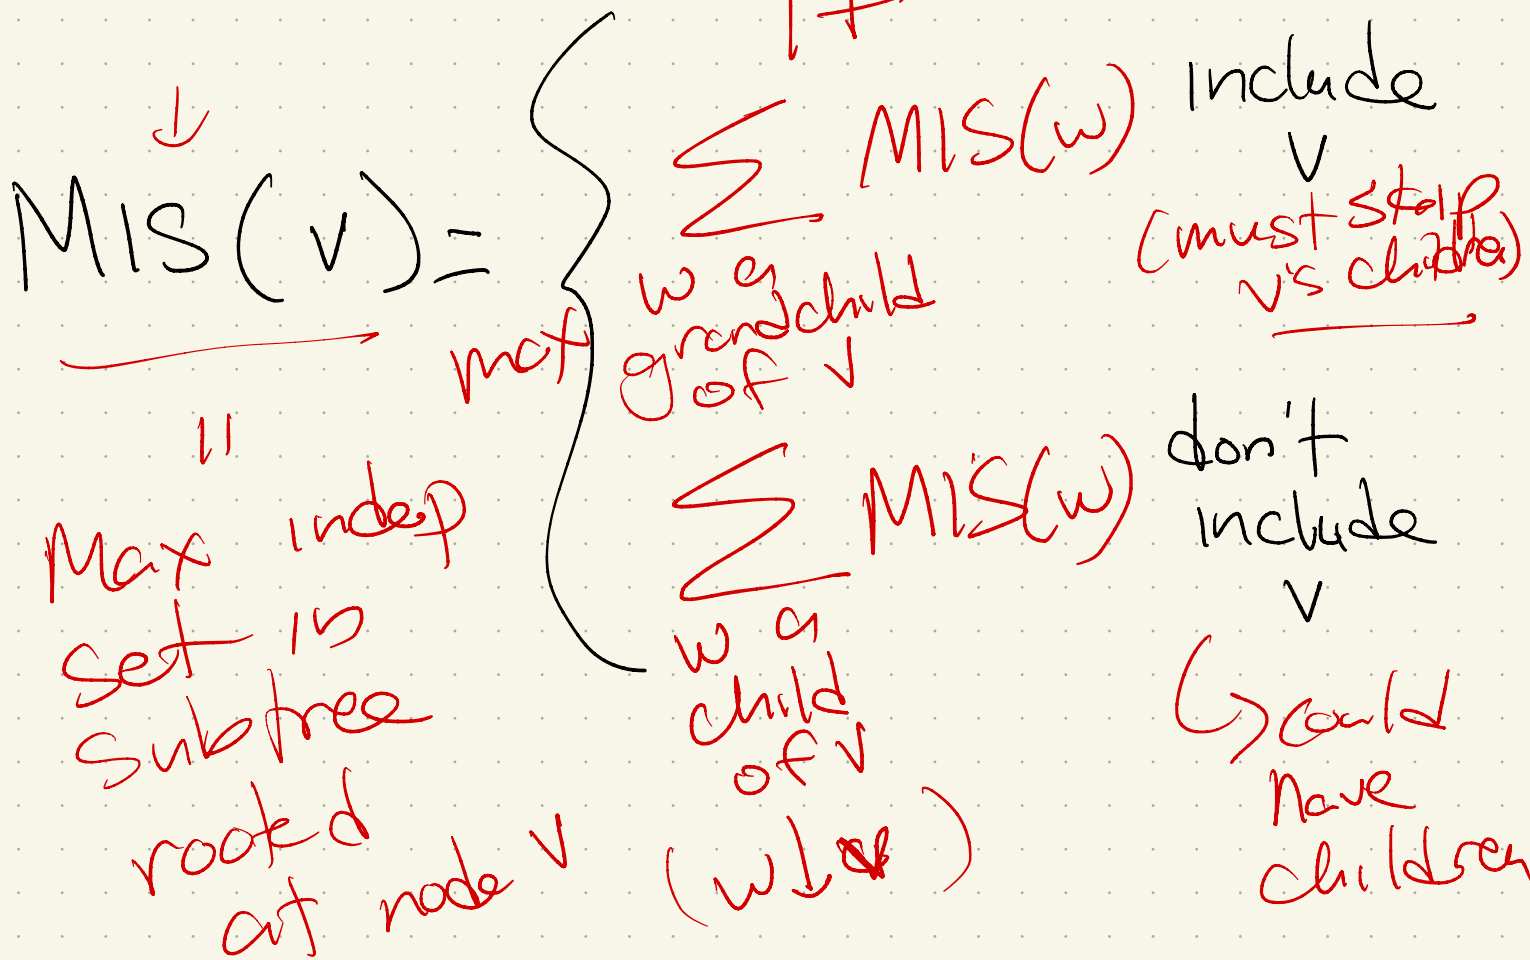 1 +
MIS(v) = max
∑ MIS(w)
w a
grandchild
of v
include
v
(must skip
v's children)
∑ MIS(w)
w a
child
of v
don't
include
v
↳ could
have
children
=
Max indep
set in
subtree
rooted
at node v